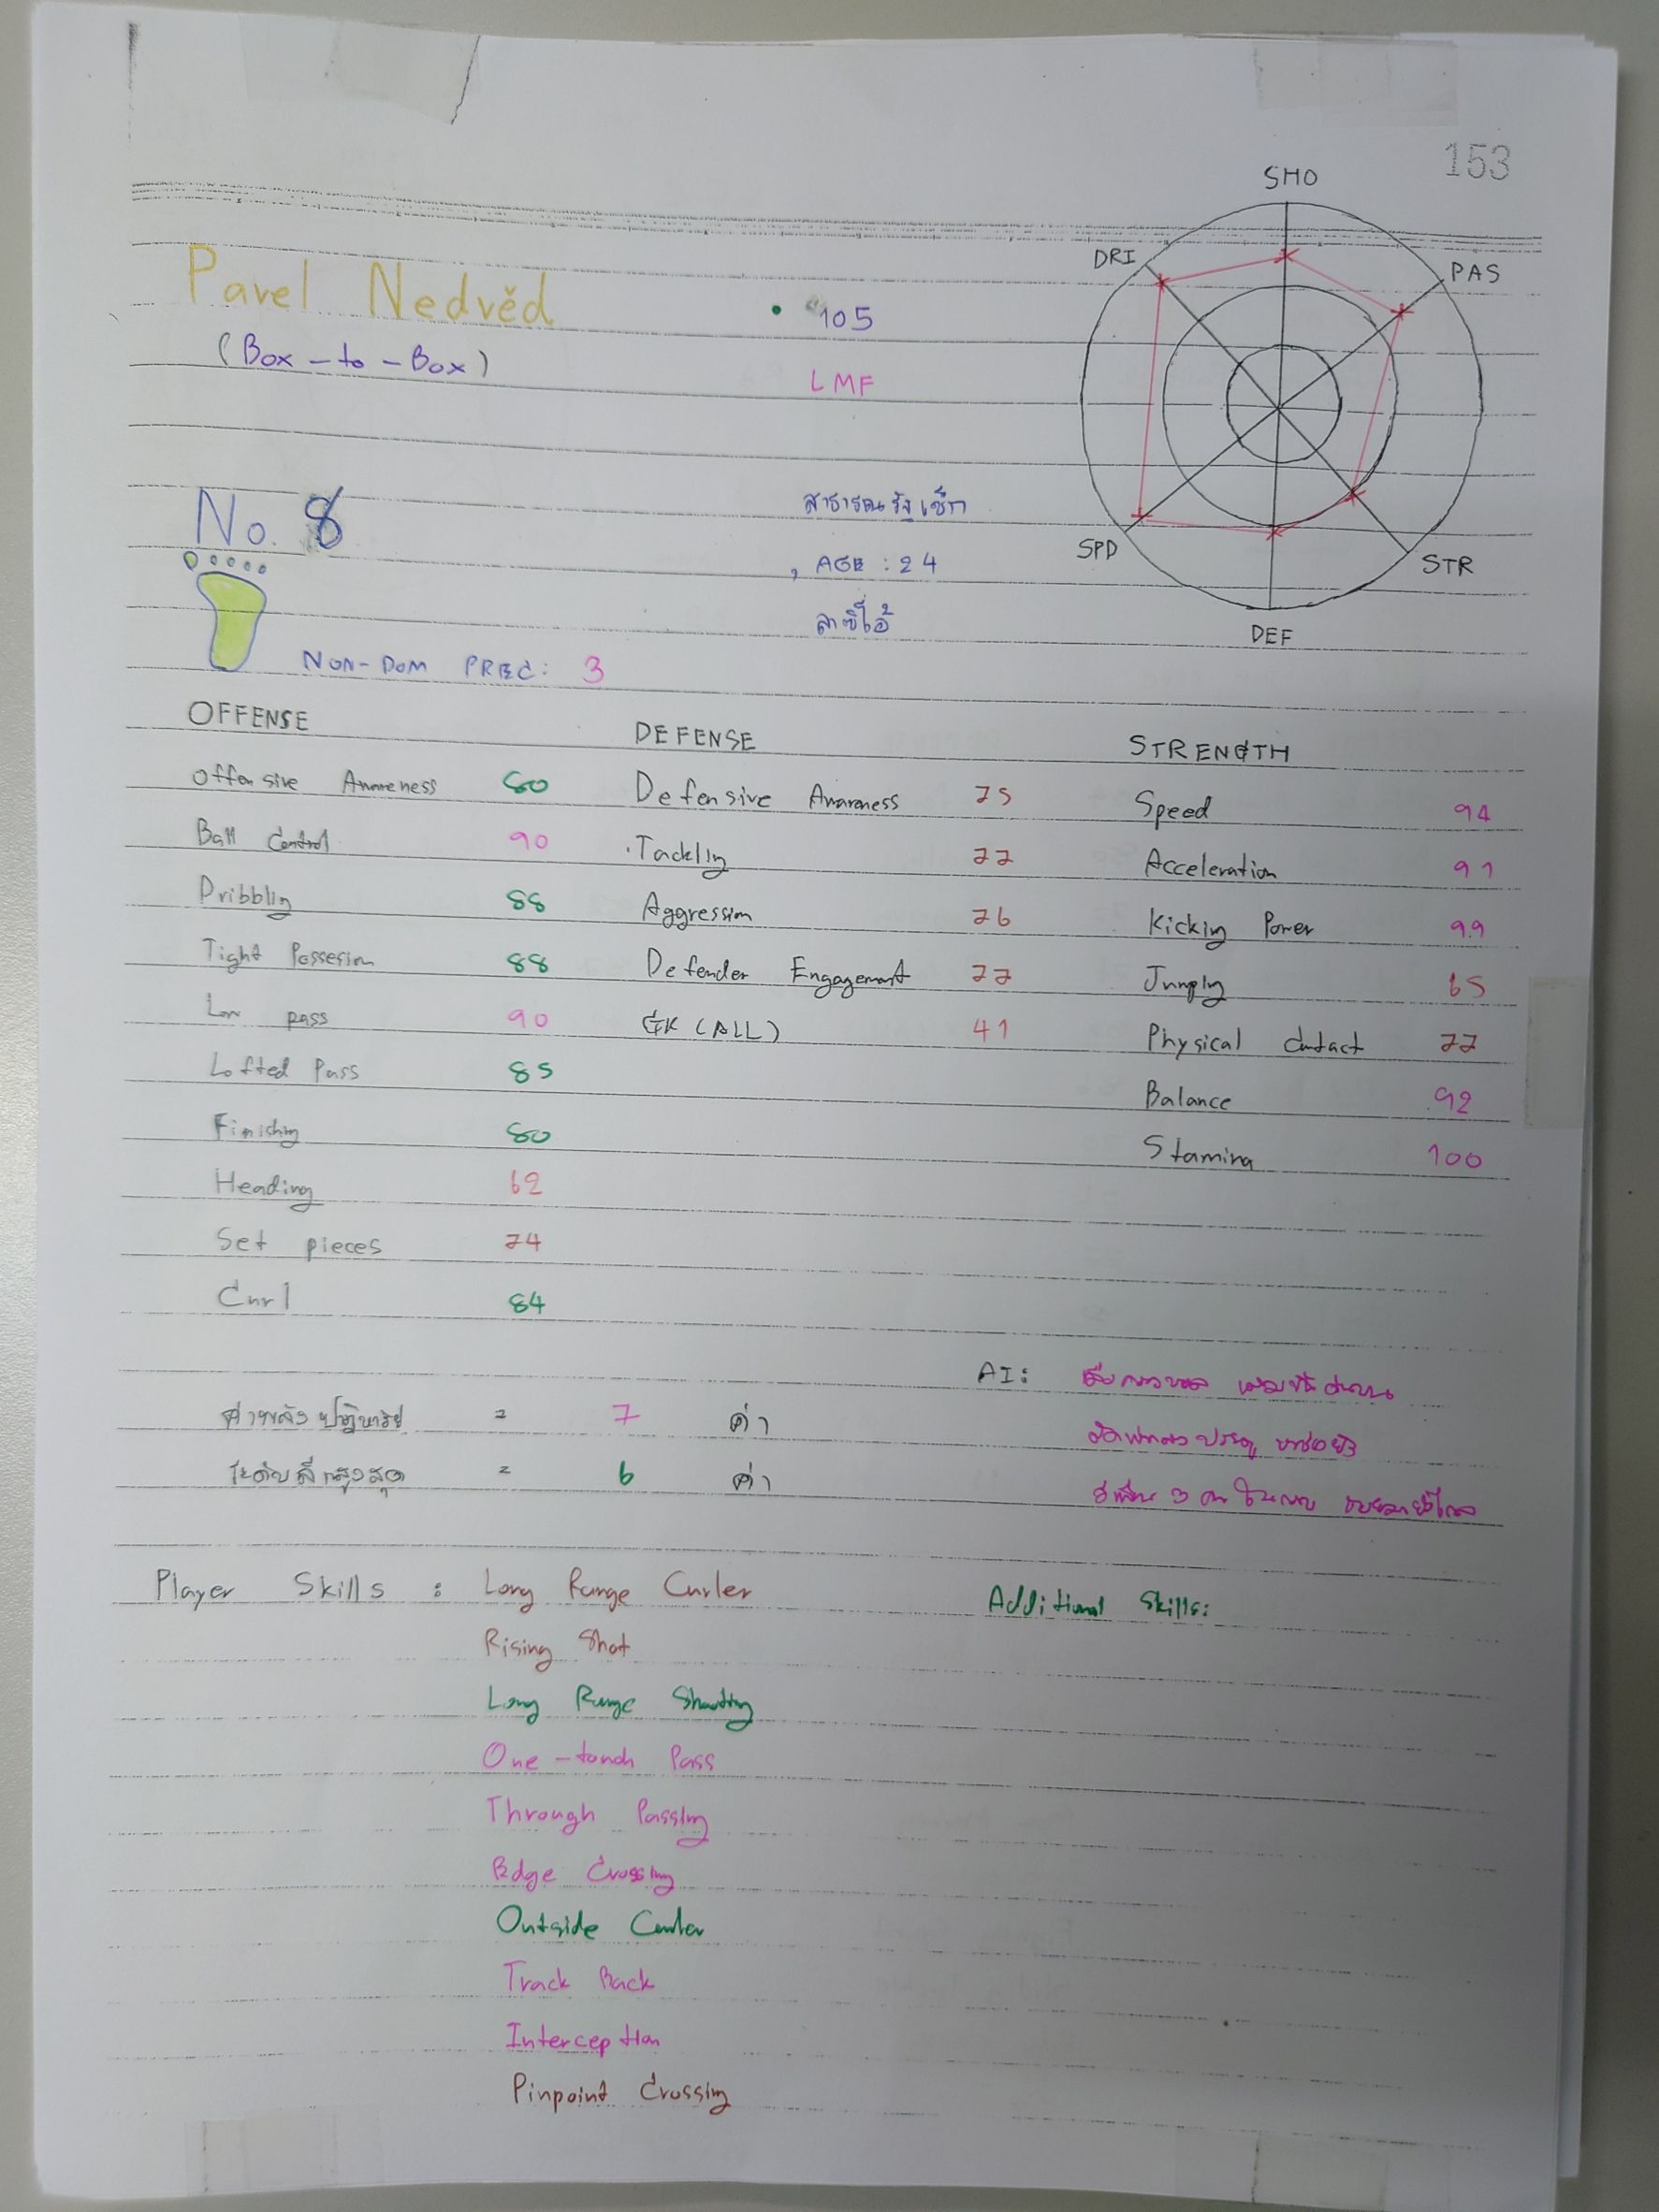 153
SHO
DRI
PAS
SPD
STR
DEF
Pavel Nedvěd
(Box-to-Box)
• 105
LMF
No. 8
สาธารณรัฐเช็ก
, AGE : 24
ลาซิโอ้
NON-DOM PREC: 3
OFFENSE DEFENSE STRENGTH
Offensive Awareness 80 Defensive Awareness 75 Speed 94
Ball Control 90 Tackling 77 Acceleration 91
Dribbling 88 Aggression 76 Kicking Power 99
Tight Possesion 88 Defender Engagement 77 Jumping 65
Low pass 90 GK (ALL) 41 Physical Contact 77
Lofted Pass 85 Balance 92
Finishing 80 Stamina 100
Heading 62
Set pieces 74
Curl 84
AI:
ค่าพลังปาฏิหาริย์ = 7 ค่า
ระดับสีสูงสุด = 6 ค่า
Player Skills : Long Range Curler Additional Skills:
Rising Shot
Long Range Shooting
One-touch Pass
Through Passing
Edge Crossing
Outside Curler
Track Back
Interception
Pinpoint Crossing